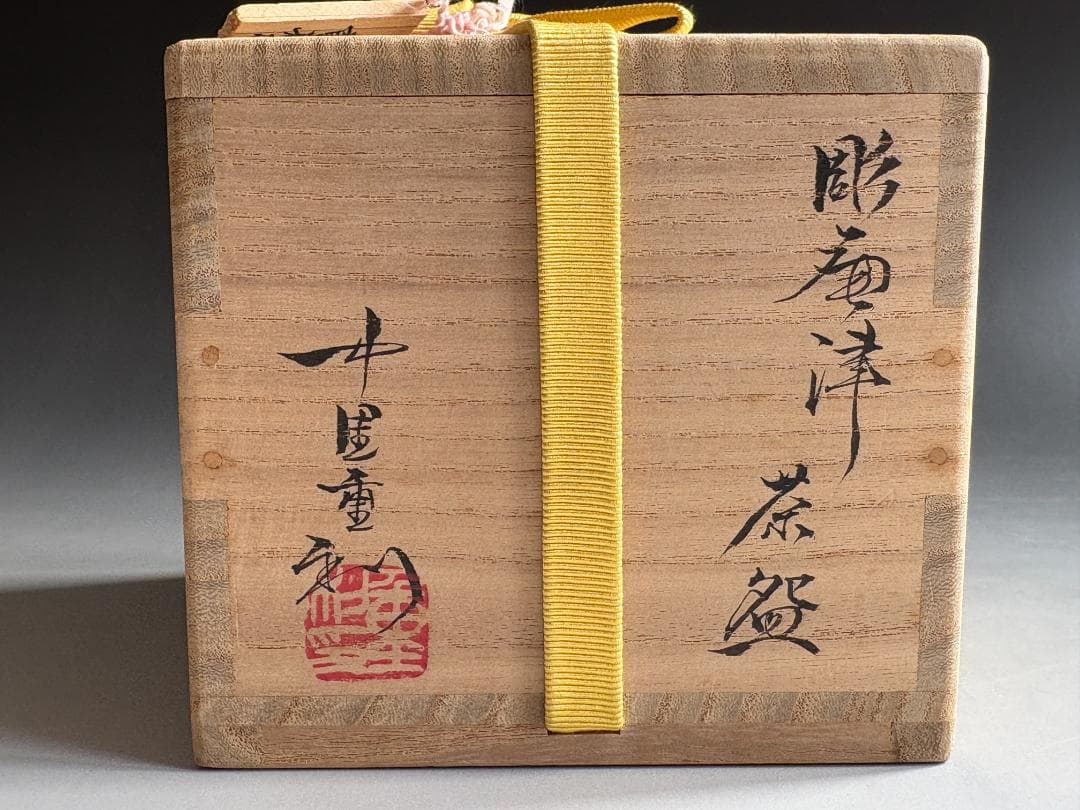 彫唐津茶盌
中里重利